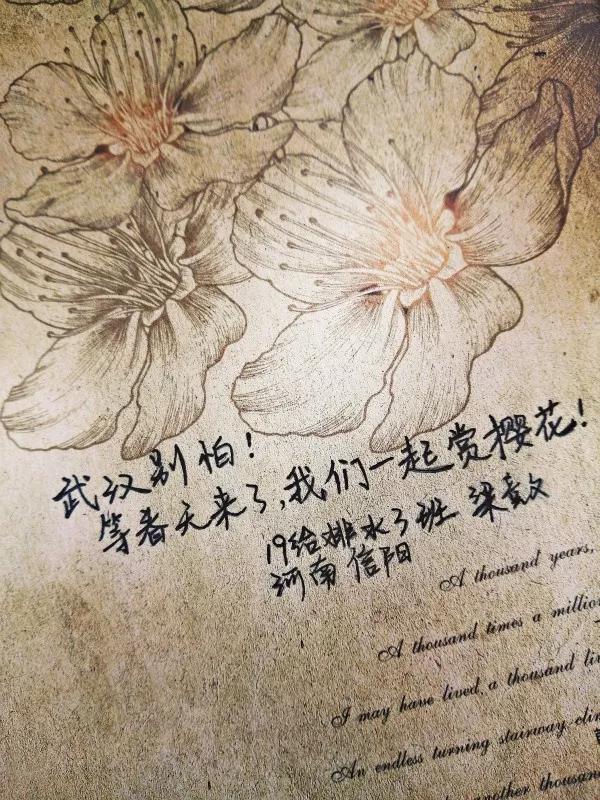 武汉别怕！
等春天来了，我们一起赏樱花！
19给排水3班 梁
河南 信阳
A thousand years,
A thousand times a million
I may have lived a thousand
An endless turning stairway
another thousand